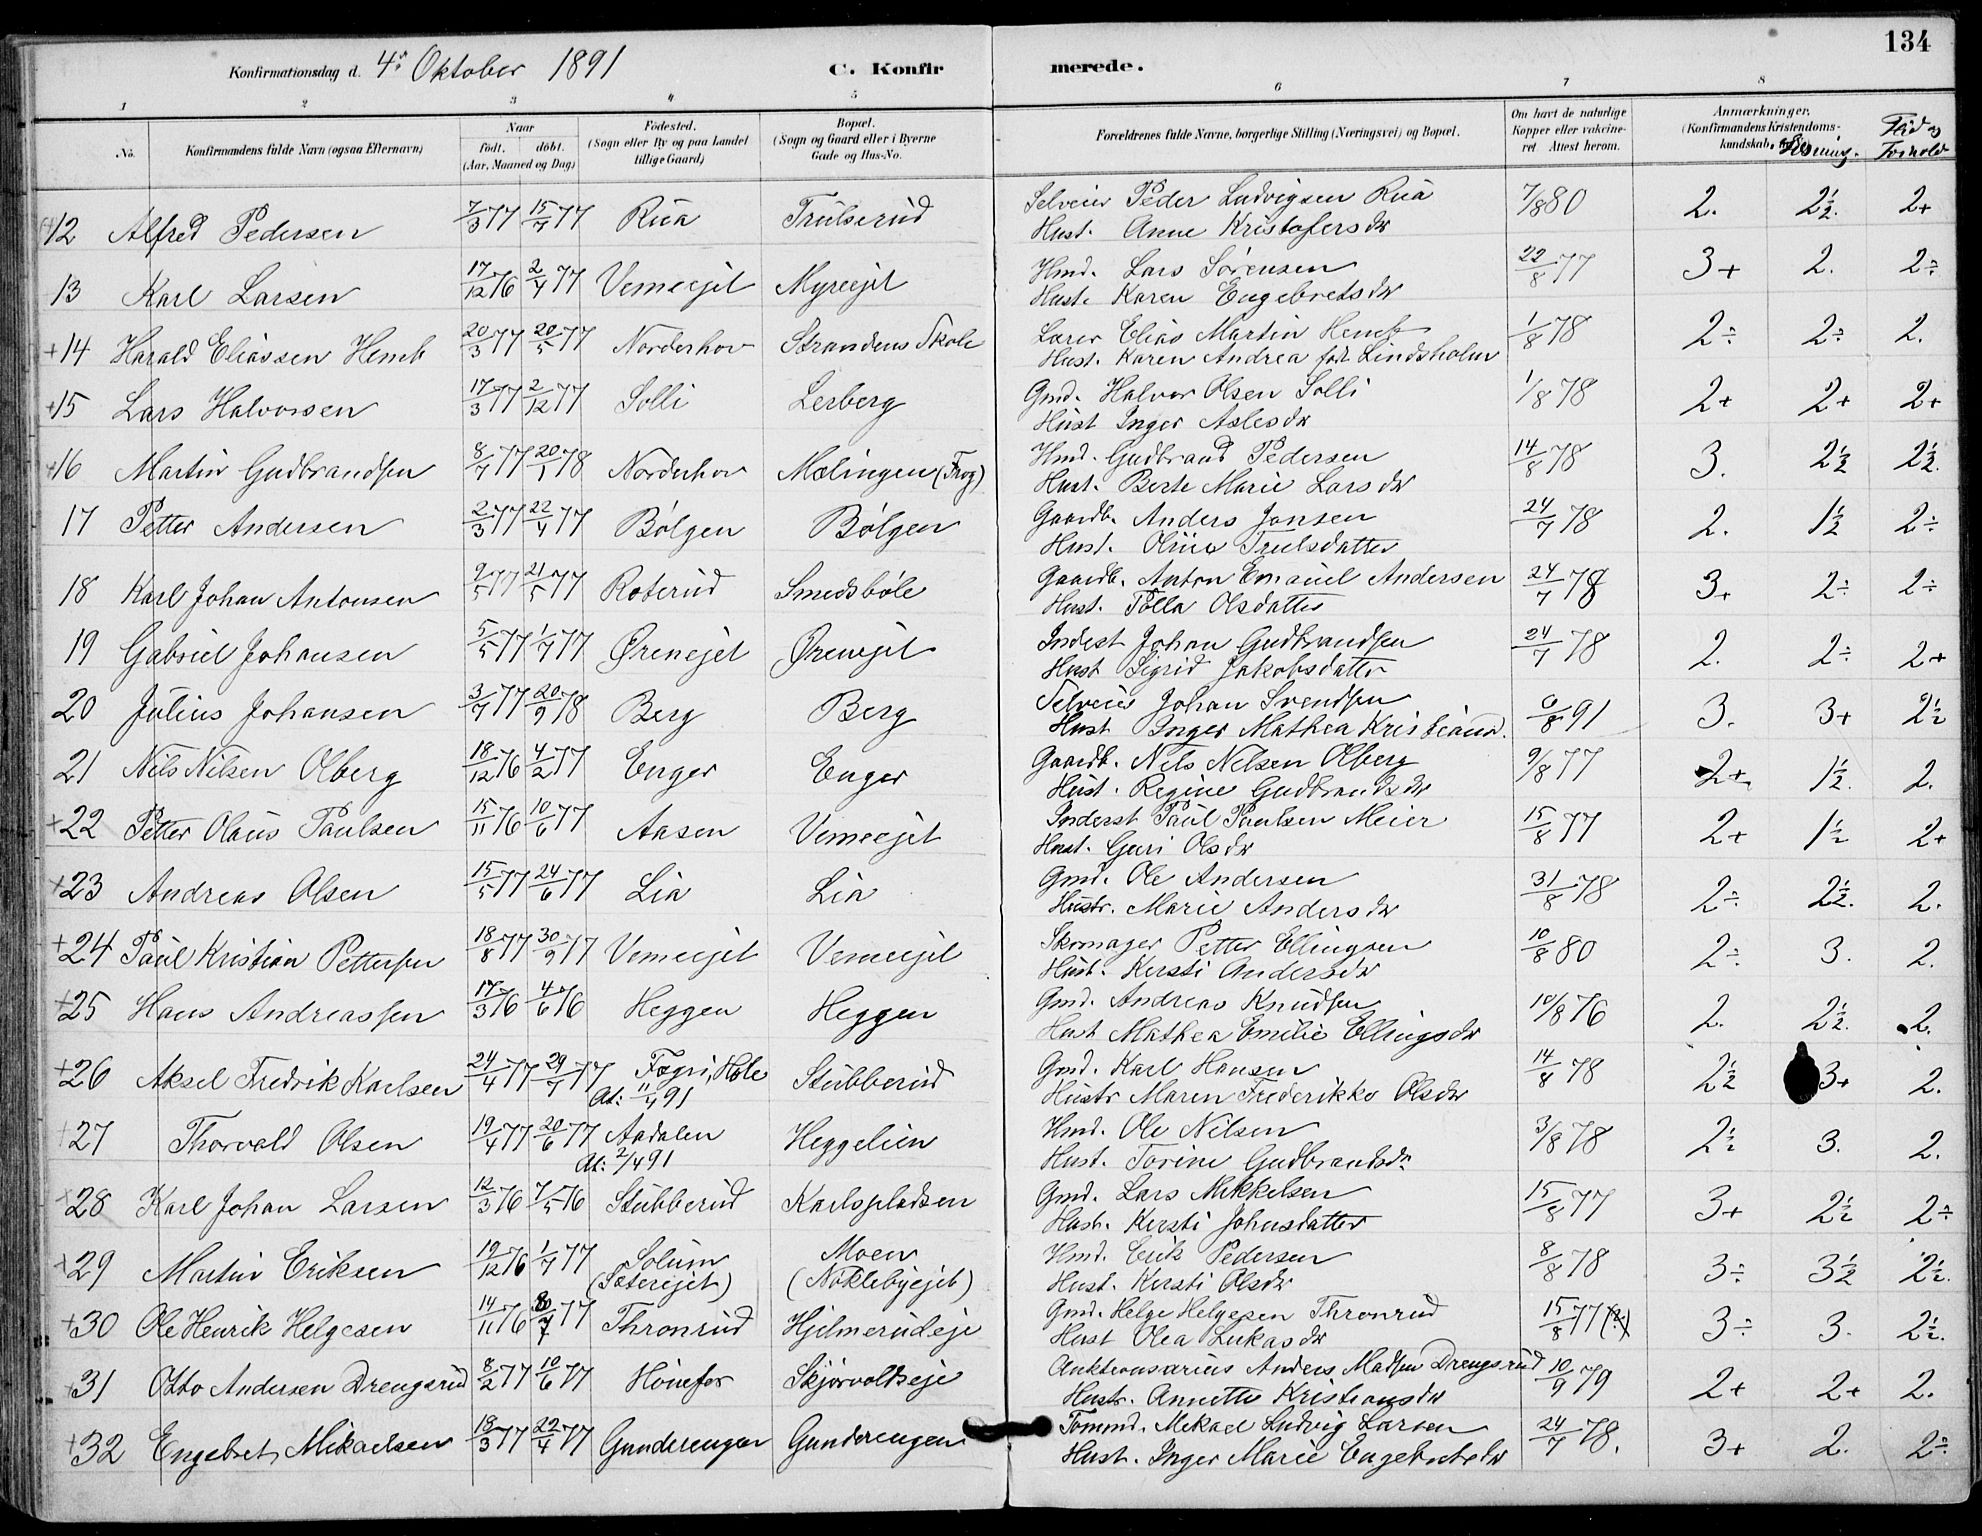 134
Konfirmationsdag d. 4de Oktober 1891 C. Konfirmerede.
1 2 3 4 5 6 7 8
No. Konfirmandens fulde Navn (ogsaa Efternavn) Naar født. døbt. (Aar, Maaned og Dag) Fødested. (Sogn eller By og paa Landet tillige Gaard) Bopæl. (Sogn og Gaard eller i Byerne Gade og Hus-No. Forældrenes fulde Navne, borgerlige Stilling (Næringsvei) og Bopæl. Om havt de naturlige Kopper eller vakcineret Attest herom. Anmærkninger. (Konfirmandens Kristendomskundskab, Flid og Forhold
12 Alfred Pedersen 7/3 77 15/7 77 Rua Trulserud Selveier Peder Ludvigsen Rua 7/8 80 2. 2½. 2+
Hust. Anne Kristofersdr
13 Karl Larsen 17/12 76 2/4 77 Vemeejet Myreejet Hmd. Lars Sørensen 22/8 77 3+ 2. 2÷
Hust. Karen Engebretsdr
+14 Harald Eliassen Hemb 20/3 77 20/5 77 Norderhov Strandens Skole Lærer Elias Martin Hemb 1/8 78 2÷ 2÷ 2.
Hust. Karen Andrea født Lindsholm
+15 Lars Halvorsen 17/3 77 2/12 77 Solli Lerberg Gmd. Halvor Olsen Solli 1/8 78 2+ 2+ 2+
Hust Inger Aslesdr
+16 Martin Gudbrandsen 8/7 77 20/1 78 Norderhov Mælingen (Frog) Hmd. Gudbrand Pedersen 14/8 78 3. 2½ 2½.
Hust. Berte Marie Larsdr
17 Petter Andersen 2/3 77 22/4 77 Bølgen Bølgen Gaardb. Anders Jonsen 24/7 78 2. 1½ 2÷
Hust. Oline Trulsdatter
18 Karl Johan Antonsen 9/5 77 21/5 77 Roterud Smedsbøle Gaardb. Anton Emanuel Andersen 24/7 78 3+ 2÷ 2÷
Hust. Polla Olsdatter
19 Gabriel Johansen 5/5 77 1/7 77 Øreneejet Øreneejet Inderst Johan Gudbrandsen 24/7 78 2. 2÷ 2+
Hust Sigrid Jakobsdatter
20 Julius Johansen 3/7 77 20/9 78 Berg Berg Selveier Johan Svendsen 6/8 91 3. 3+ 2½
Hust Inger Mathea Kristiansd.
21 Nils Nilsen Olberg 18/12 76 4/2 77 Enger Enger Gaardb. Nils Nilsen Olberg 9/8 77 2+ 1½. 2.
Hust. Regine Gudbrandsdr
+22 Petter Olaus Paulsen 15/11 76 10/6 77 Aasen Vemeejet Inderst Paul Paulsen Meier 15/8 77 2+ 1½ 2+
Hust. Guri Olsdr
+23 Andreas Olsen 15/5 77 24/6 77 Lia Lia Gmd. Ole Andersen 31/8 78 2÷ 2½. 2.
Hustr. Marie Andersdr
+24 Paul Kristian Pettersen 18/8 77 30/9 77 Vemeejet Vemeejet Skomager Petter Ellingsen 10/8 80 2÷ 3. 2.
Hust. Kersti Andersdr
+25 Hans Andreassen 17/3 76 4/6 76 Heggen Heggen Gmd. Andreas Knudsen 10/8 76 2. 2½. 2.
Hust Mathea Emilie Ellingsdr
+26 Aksel Fredrik Karlsen 24/4 77 29/7 77 Fægri, Hole Stubberud Gmd. Karl Hansen 14/8 78 2½ 3+ 2.
At: 11/4 91 Hustr Maren Frederikke Olsdr
+27 Thorvald Olsen 19/4 77 20/6 77 Aadalen Heggelien Hmd. Ole Nilsen 3/8 78 2½ 3. 2.
At: 2/4 91 Hust. Torine Gudbrandsdr.
+28 Karl Johan Larsen 12/3 76 7/5 76 Stubberud Karlspladsen Gmd. Lars Mikkelsen 15/8 77 3+ 2½ 2÷
Hust. Kersti Johnsdatter
+29 Martin Eriksen 19/12 76 1/7 77 Solum Moen Hmd. Erik Pedersen 8/8 78 3÷ 3½ 2½.
(Sæterejet) (Noklebyejet) Hust. Kersti Olsdr
+30 Ole Henrik Helgesen 14/11 76 8/7 77 Thronrud Hjelmerudeje Gmd. Helge Helgesen Thronrud 15/8 77 3÷ 3. 2½.
Hust Olea Lukasdr
+31 Otto Andersen Drengsrud 8/2 77 10/6 77 Hønefos Skjørvoldseje Auktionsarius Anders Madsen Drengsrud 10/9 79 2+ 2+ 2.
Hustr. Annette Kristiansdr
+32 Engebret Mikaelsen 18/3 77 22/4 77 Gunderengen Gunderengen Tømmd. Mikael Ludvig Larsen 24/7 78. 3+ 2. 2÷
Hust. Inger Marie Engebretsdr